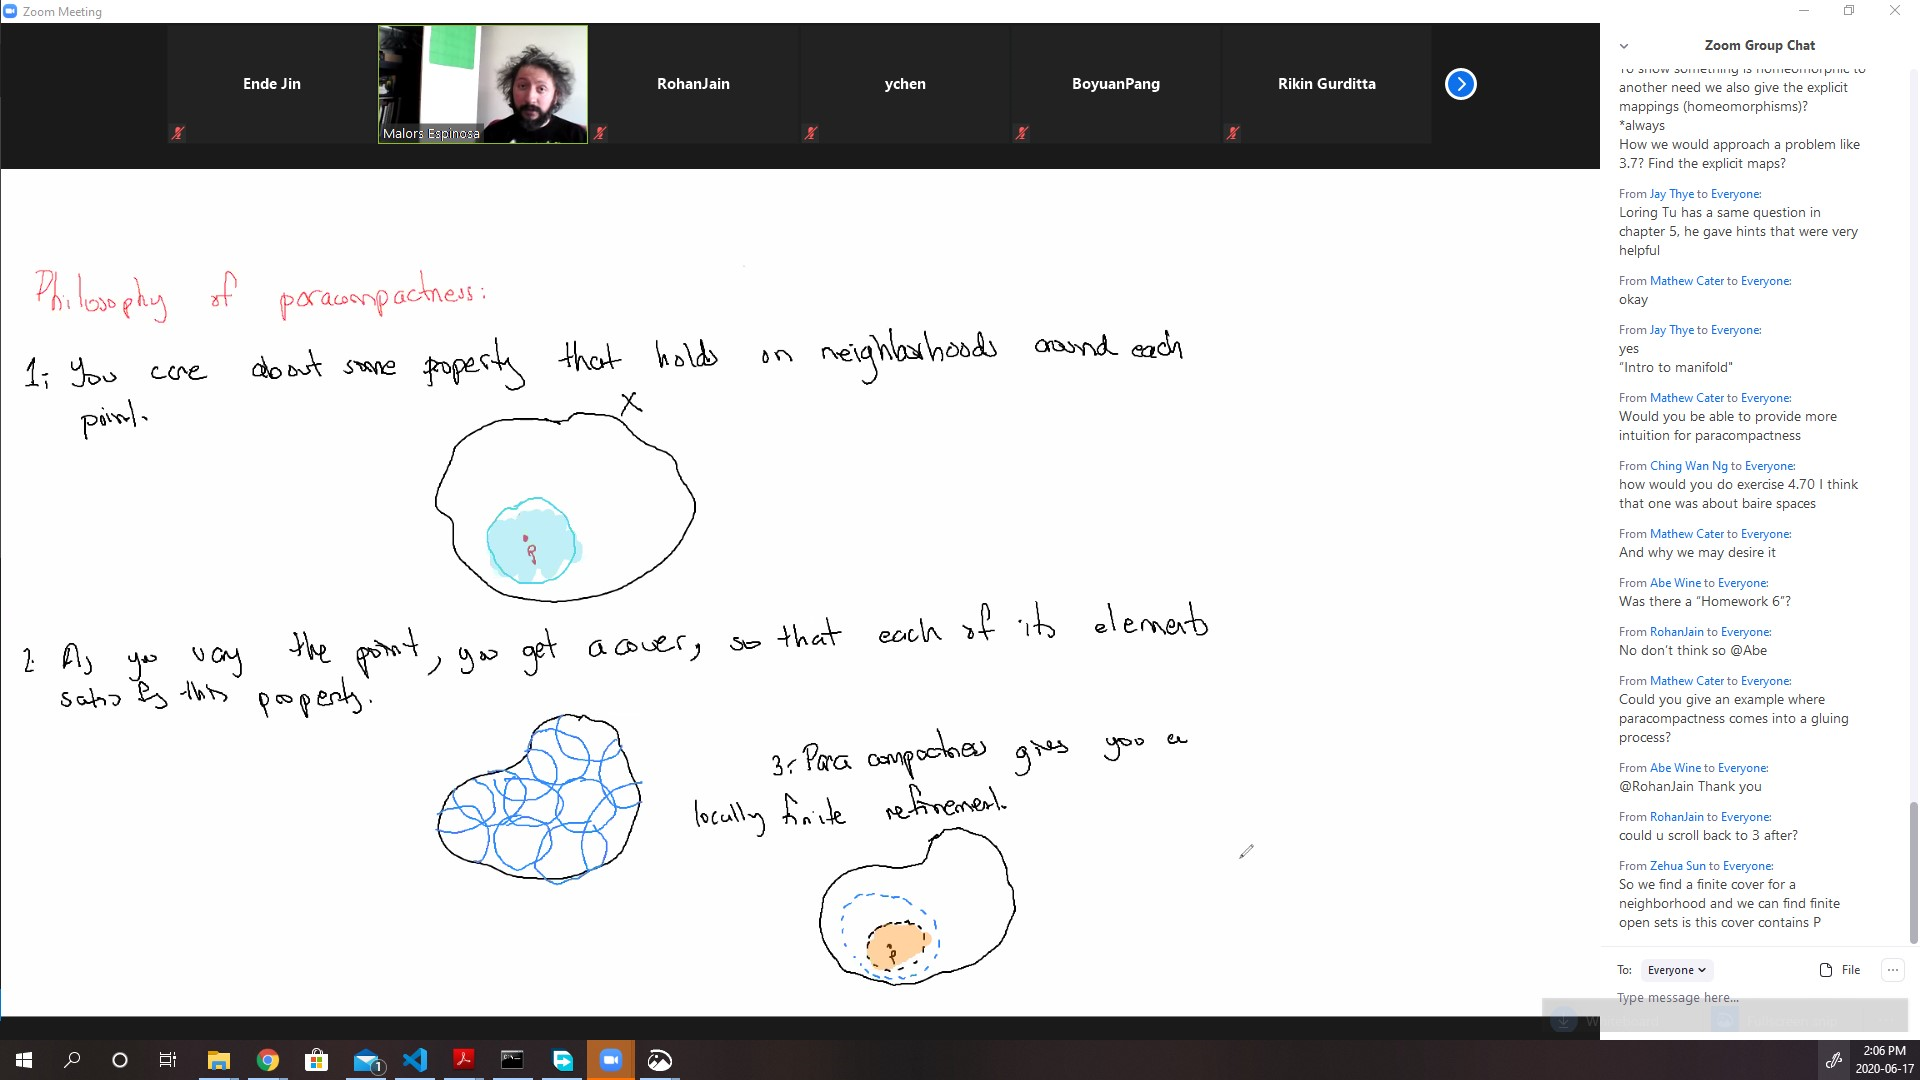 Zoom Meeting
Ende Jin
Malors Espinosa
RohanJain
ychen
BoyuanPang
Rikin Gurditta
Philosophy of paracompactness:
1: You care about some property that holds on neighborhoods around each
point.
X
P
2. As you vary the point, you get a cover, so that each of its elements
satisfy this property.
3: Paracompactness gives you a
locally finite refinement.
P
Zoom Group Chat
To show something is homeomorphic to
another need we also give the explicit
mappings (homeomorphisms)?
*always
How we would approach a problem like
3.7? Find the explicit maps?
From Jay Thye to Everyone:
Loring Tu has a same question in
chapter 5, he gave hints that were very
helpful
From Mathew Cater to Everyone:
okay
From Jay Thye to Everyone:
yes
“Intro to manifold”
From Mathew Cater to Everyone:
Would you be able to provide more
intuition for paracompactness
From Ching Wan Ng to Everyone:
how would you do exercise 4.70 I think
that one was about baire spaces
From Mathew Cater to Everyone:
And why we may desire it
From Abe Wine to Everyone:
Was there a “Homework 6”?
From RohanJain to Everyone:
No don’t think so @Abe
From Mathew Cater to Everyone:
Could you give an example where
paracompactness comes into a gluing
process?
From Abe Wine to Everyone:
@RohanJain Thank you
From RohanJain to Everyone:
could u scroll back to 3 after?
From Zehua Sun to Everyone:
So we find a finite cover for a
neighborhood and we can find finite
open sets is this cover contains P
To: Everyone
File
Type message here...
1
2:06 PM
2020-06-17